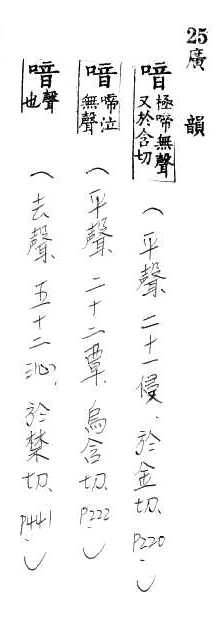 25 廣韻
喑 極啼無聲又於含切 （平聲 二十一侵、於金切、P220、）
喑 啼泣無聲 （平聲 二十二覃、烏含切、P222、）
喑 聲也 （去聲 五十二沁、於禁切、P441、）